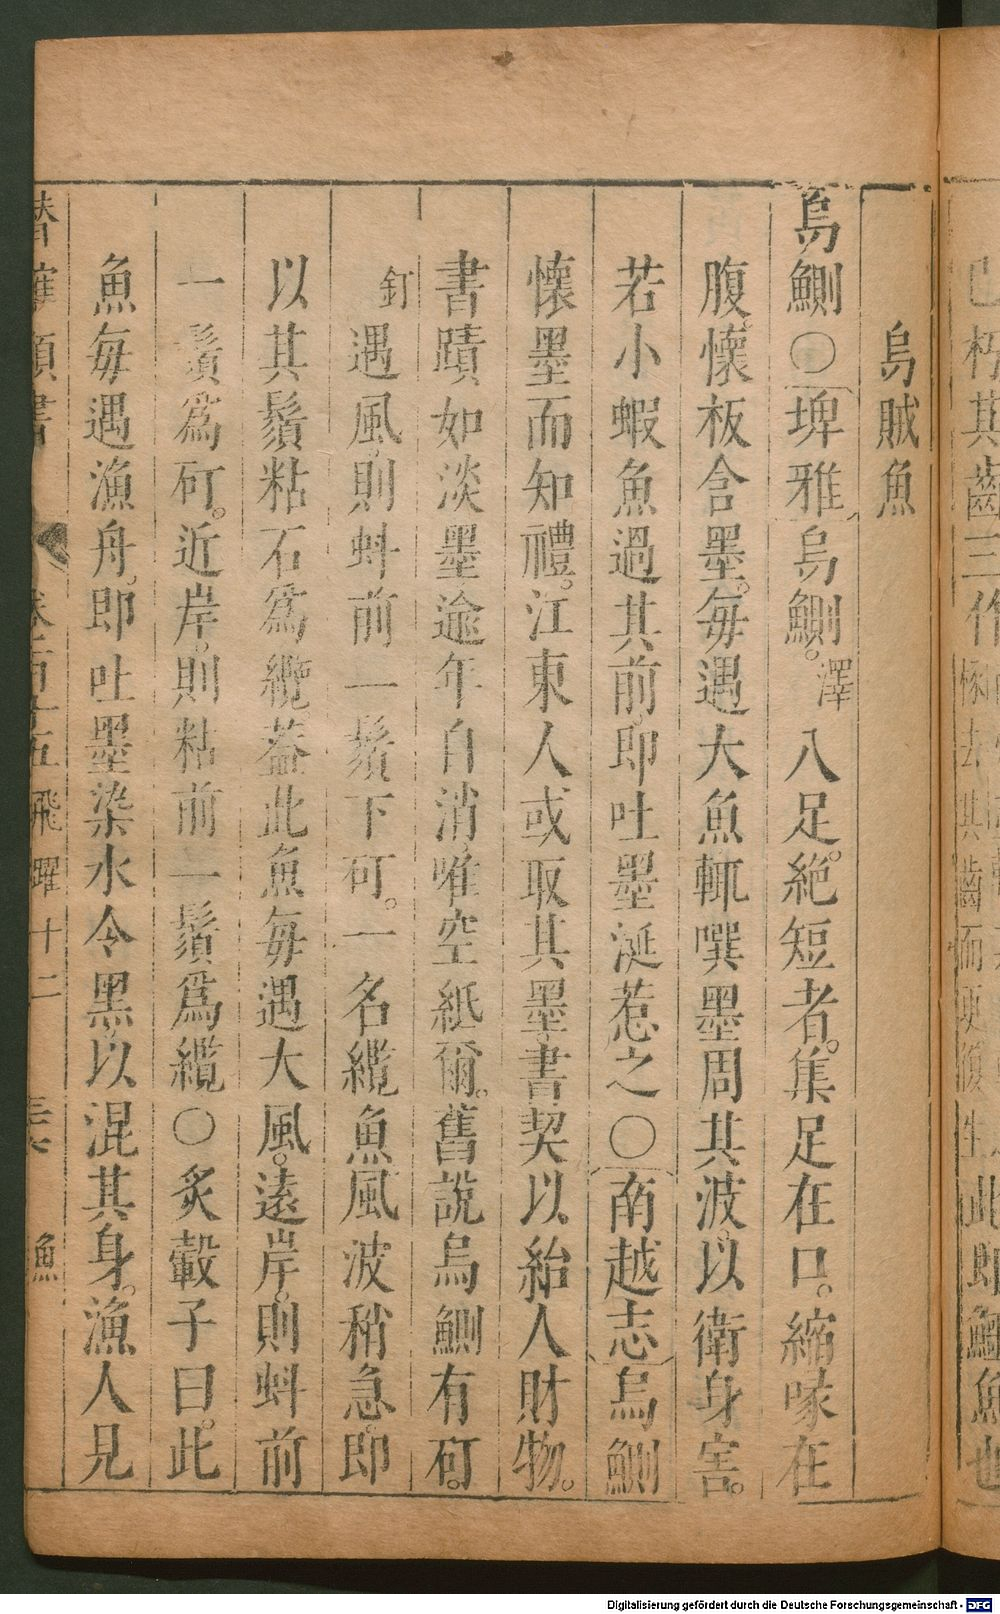 已朽其齒三作
琢去其齒而更復生
此即鱷魚也
烏賊魚
烏鰂〇埤雅烏鰂。澤八足。絶短者。集足在口。縮喙在
腹。懷板含墨。每遇大魚輒噀墨周其波。以衛身害。
若小蝦魚過其前。即吐墨涎惹之〇南越志烏鰂
懷墨而知禮。江東人或取其墨。書契以紿人財物。
書蹟如淡墨逾年自消。唯空紙爾。舊說烏鰂有矴。
釘遇風。則蚪前一鬚下矴。一名纜魚風波稍急。即
以其鬚粘石爲纜。葢此魚每遇大風。遠岸。則蚪前
一鬚爲矴。近岸。則粘前一鬚爲纜〇炙轂子曰。此
魚每遇漁舟。即吐墨染水令黑。以混其身。漁人見
潛確類書
卷百十五 飛躍十二 魚
Digitalisierung gefördert durch die Deutsche Forschungsgemeinschaft - DFG